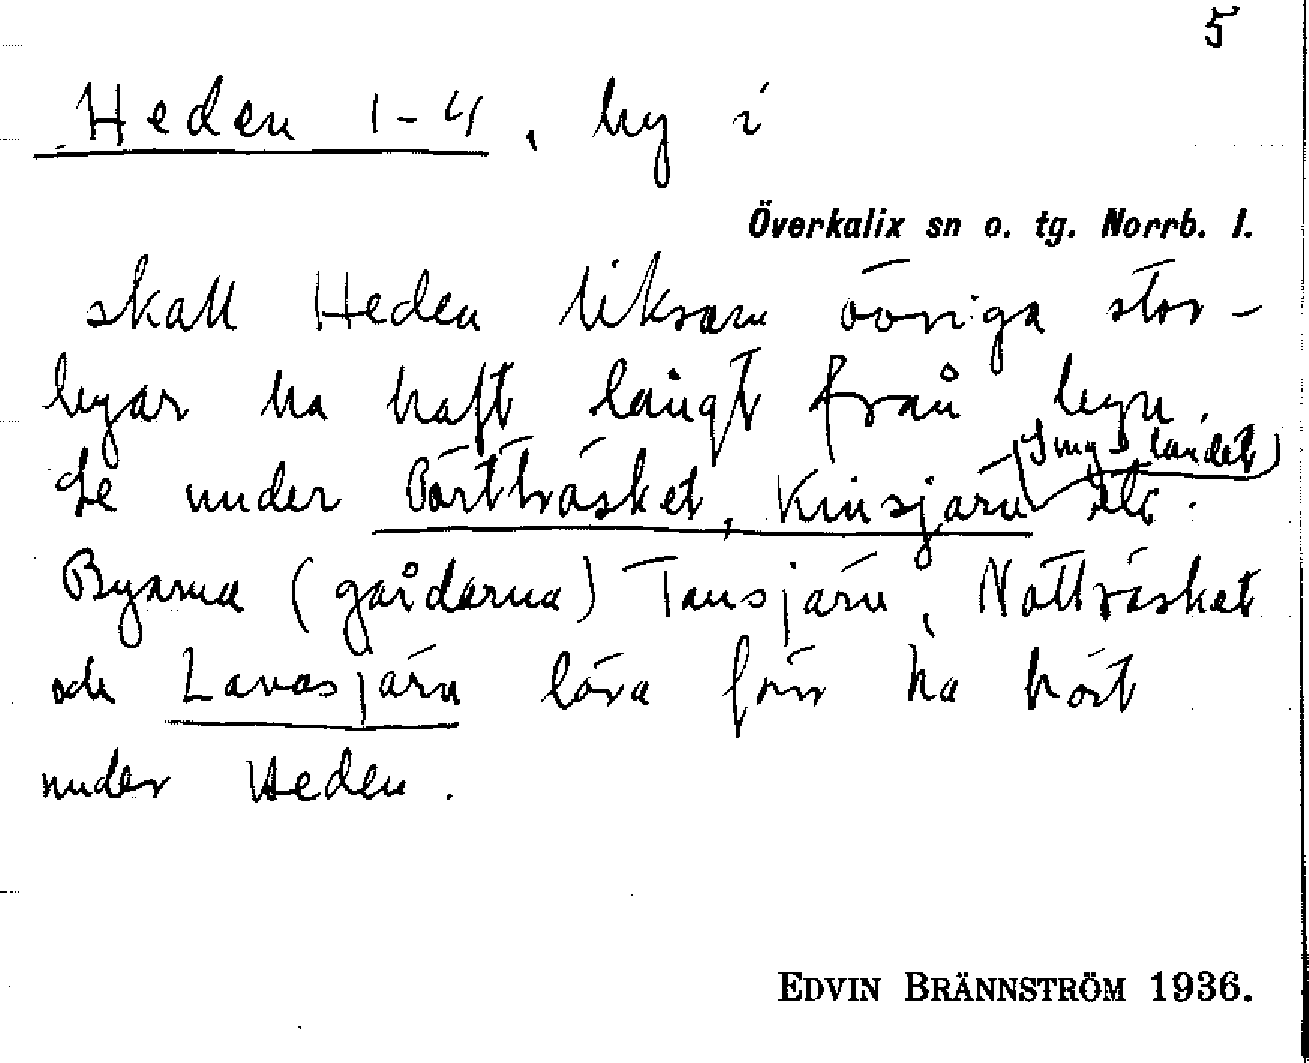 5
Heden 1-4, by i
Överkalix sn o. tg. Norrb. l.
skall Heden liksom övriga stor-
byar ha haft långt från byn.
Se under Pörtträsket, Kinsjärv (Smyslandet) etc.
Byarna (gårdarna) Tansjärv, Nattträsket
och Lavasjärv lära förr ha hört
under Heden.
EDVIN BRÄNNSTRÖM 1936.